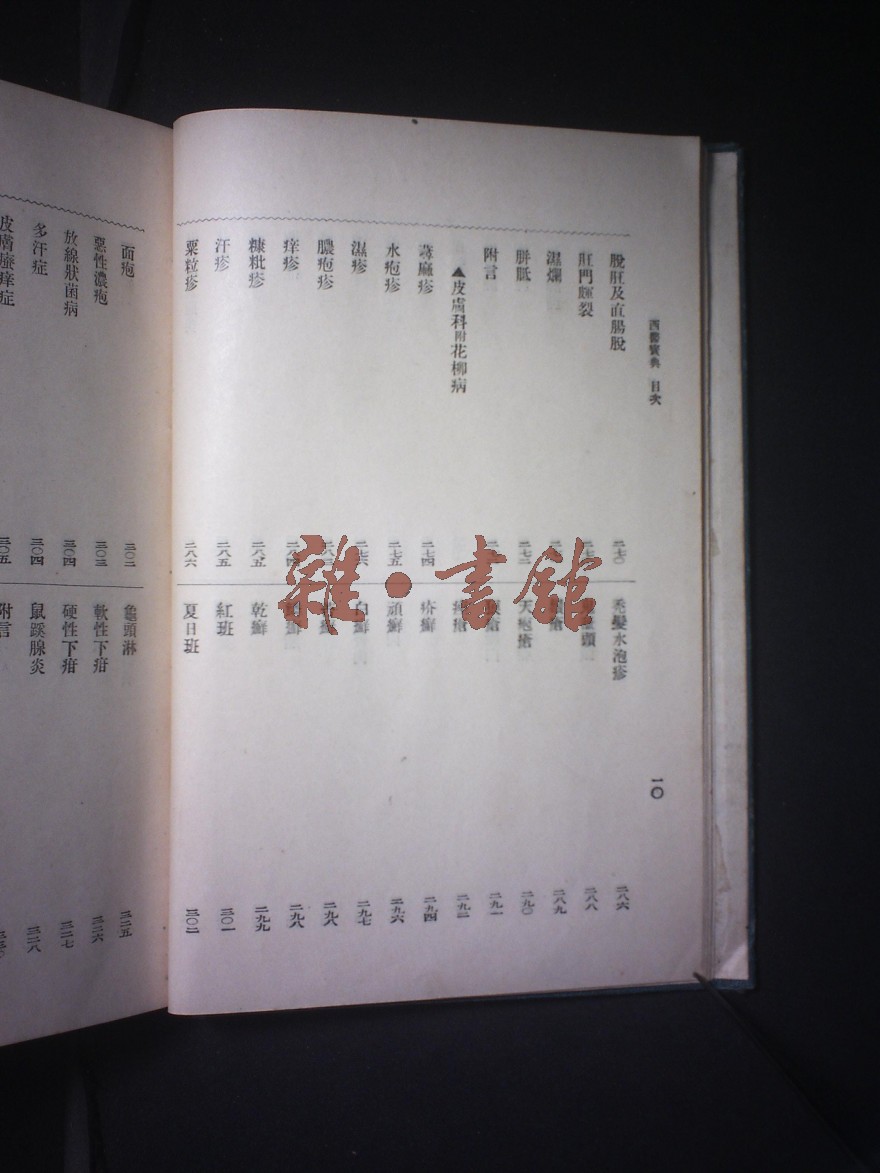 西醫寶典 目次
一〇
脫肛及直腸脫 二七〇
肛門輝裂
濕爛
胼胝 二七二
附言
▲皮膚科附花柳病
蕁麻疹 二七四
水疱疹 二七五
濕疹 二七六
膿疱疹
痒疹
糠粃疹 二八五
汗疹 二八五
粟粒疹 二八六
禿髮水泡疹 二八六
二八八
二八九
天疱瘡 二九〇
二九一
二九二
疥癬 二九四
頑癬 二九六
白癬 二九七
二九八
二九八
乾癬 二九九
紅斑 三〇一
夏日斑 三〇二
面疱 三〇二
惡性濃疱 三〇三
放線狀菌病 三〇四
多汗症 三〇四
皮膚瘙痒症 三〇五
龜頭淋 三二五
軟性下疳 三二六
硬性下疳 三二七
鼠蹊腺炎 三二八
附言
雜·書館